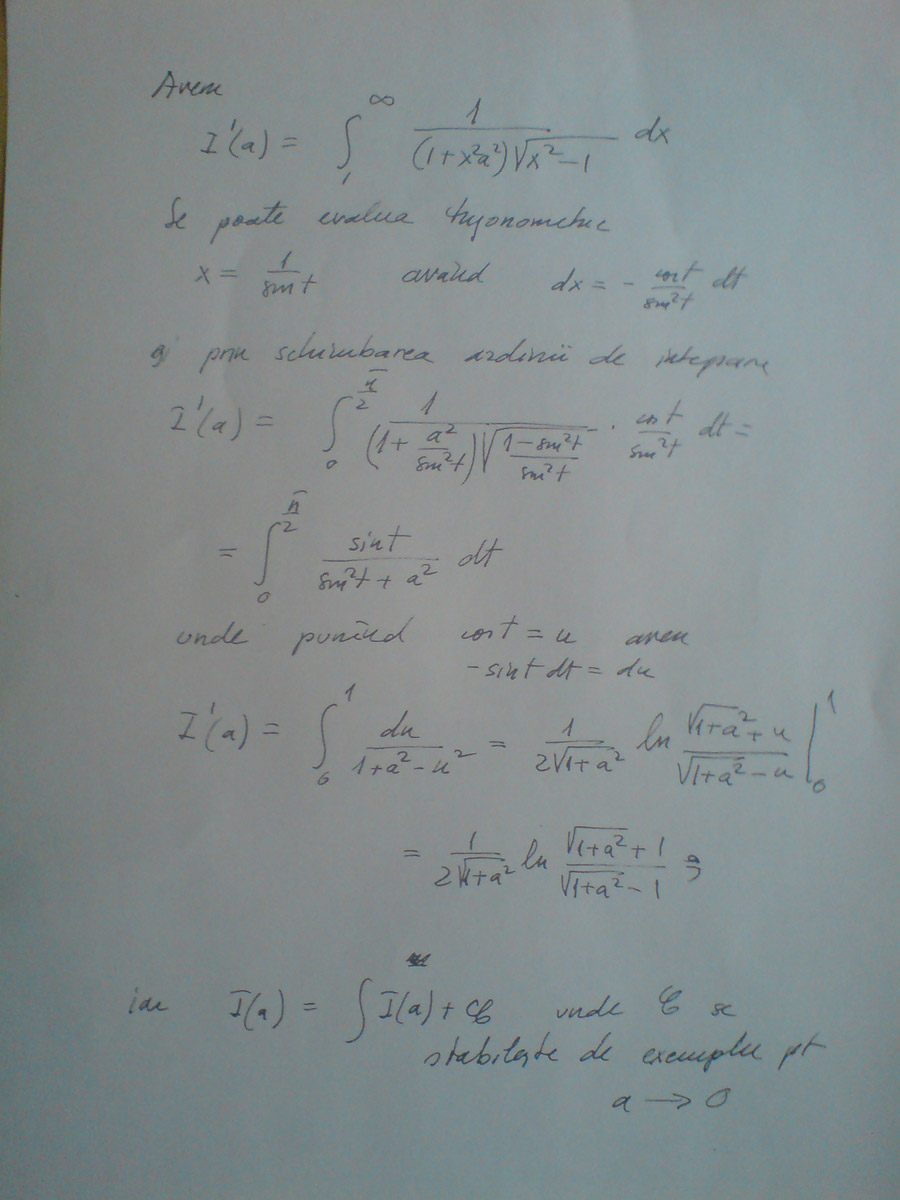 Avem
I'(a) = ∫₁^∞ 1/((1+x²a²)√(x²-1)) dx
Se poate evalua trigonometric
x = 1/sin t având dx = - cos t/sin²t dt
și prin schimbarea ordinii de integrare
I'(a) = ∫₀^(π/2) 1/((1+a²/sin²t)√((1-sin²t)/sin²t)) · cos t/sin²t dt =
= ∫₀^(π/2) sin t/(sin²t + a²) dt
unde punînd cos t = u avem
-sin t dt = du
I'(a) = ∫₀^1 du/(1+a²-u²) = 1/(2√(1+a²)) ln (√(1+a²)+u)/(√(1+a²)-u) |₀^1
= 1/(2√(1+a²)) ln (√(1+a²)+1)/(√(1+a²)-1) ;
iar I(a) = ∫I(a) + C unde C se
stabilește de exemplu pt
a → 0